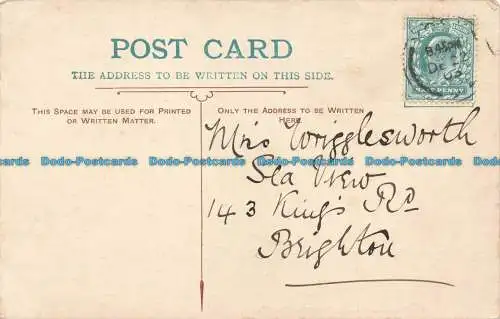 POST CARD
THE ADDRESS TO BE WRITTEN ON THIS SIDE.
THIS SPACE MAY BE USED FOR PRINTED
OR WRITTEN MATTER.
ONLY THE ADDRESS TO BE WRITTEN
HERE.
8.45 PM
DE 2
03
HALFPENNY
Mrs Wrigglesworth
Sea View
143 King's Rd
Brighton
Dodo-Postcards Dodo-Postcards Dodo-Postcards Dodo-Postcards Dodo-Postcards